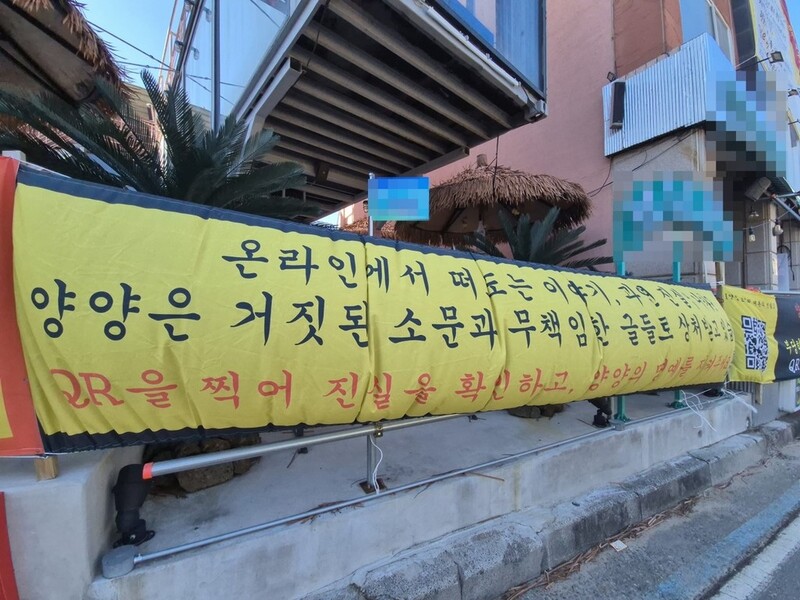 온라인에서 떠도는 이야기, 과연 진실일까?
양양은 거짓된 소문과 무책임한 글들로 상처받고 있
QR을 찍어 진실을 확인하고, 양양의 명예를
QR